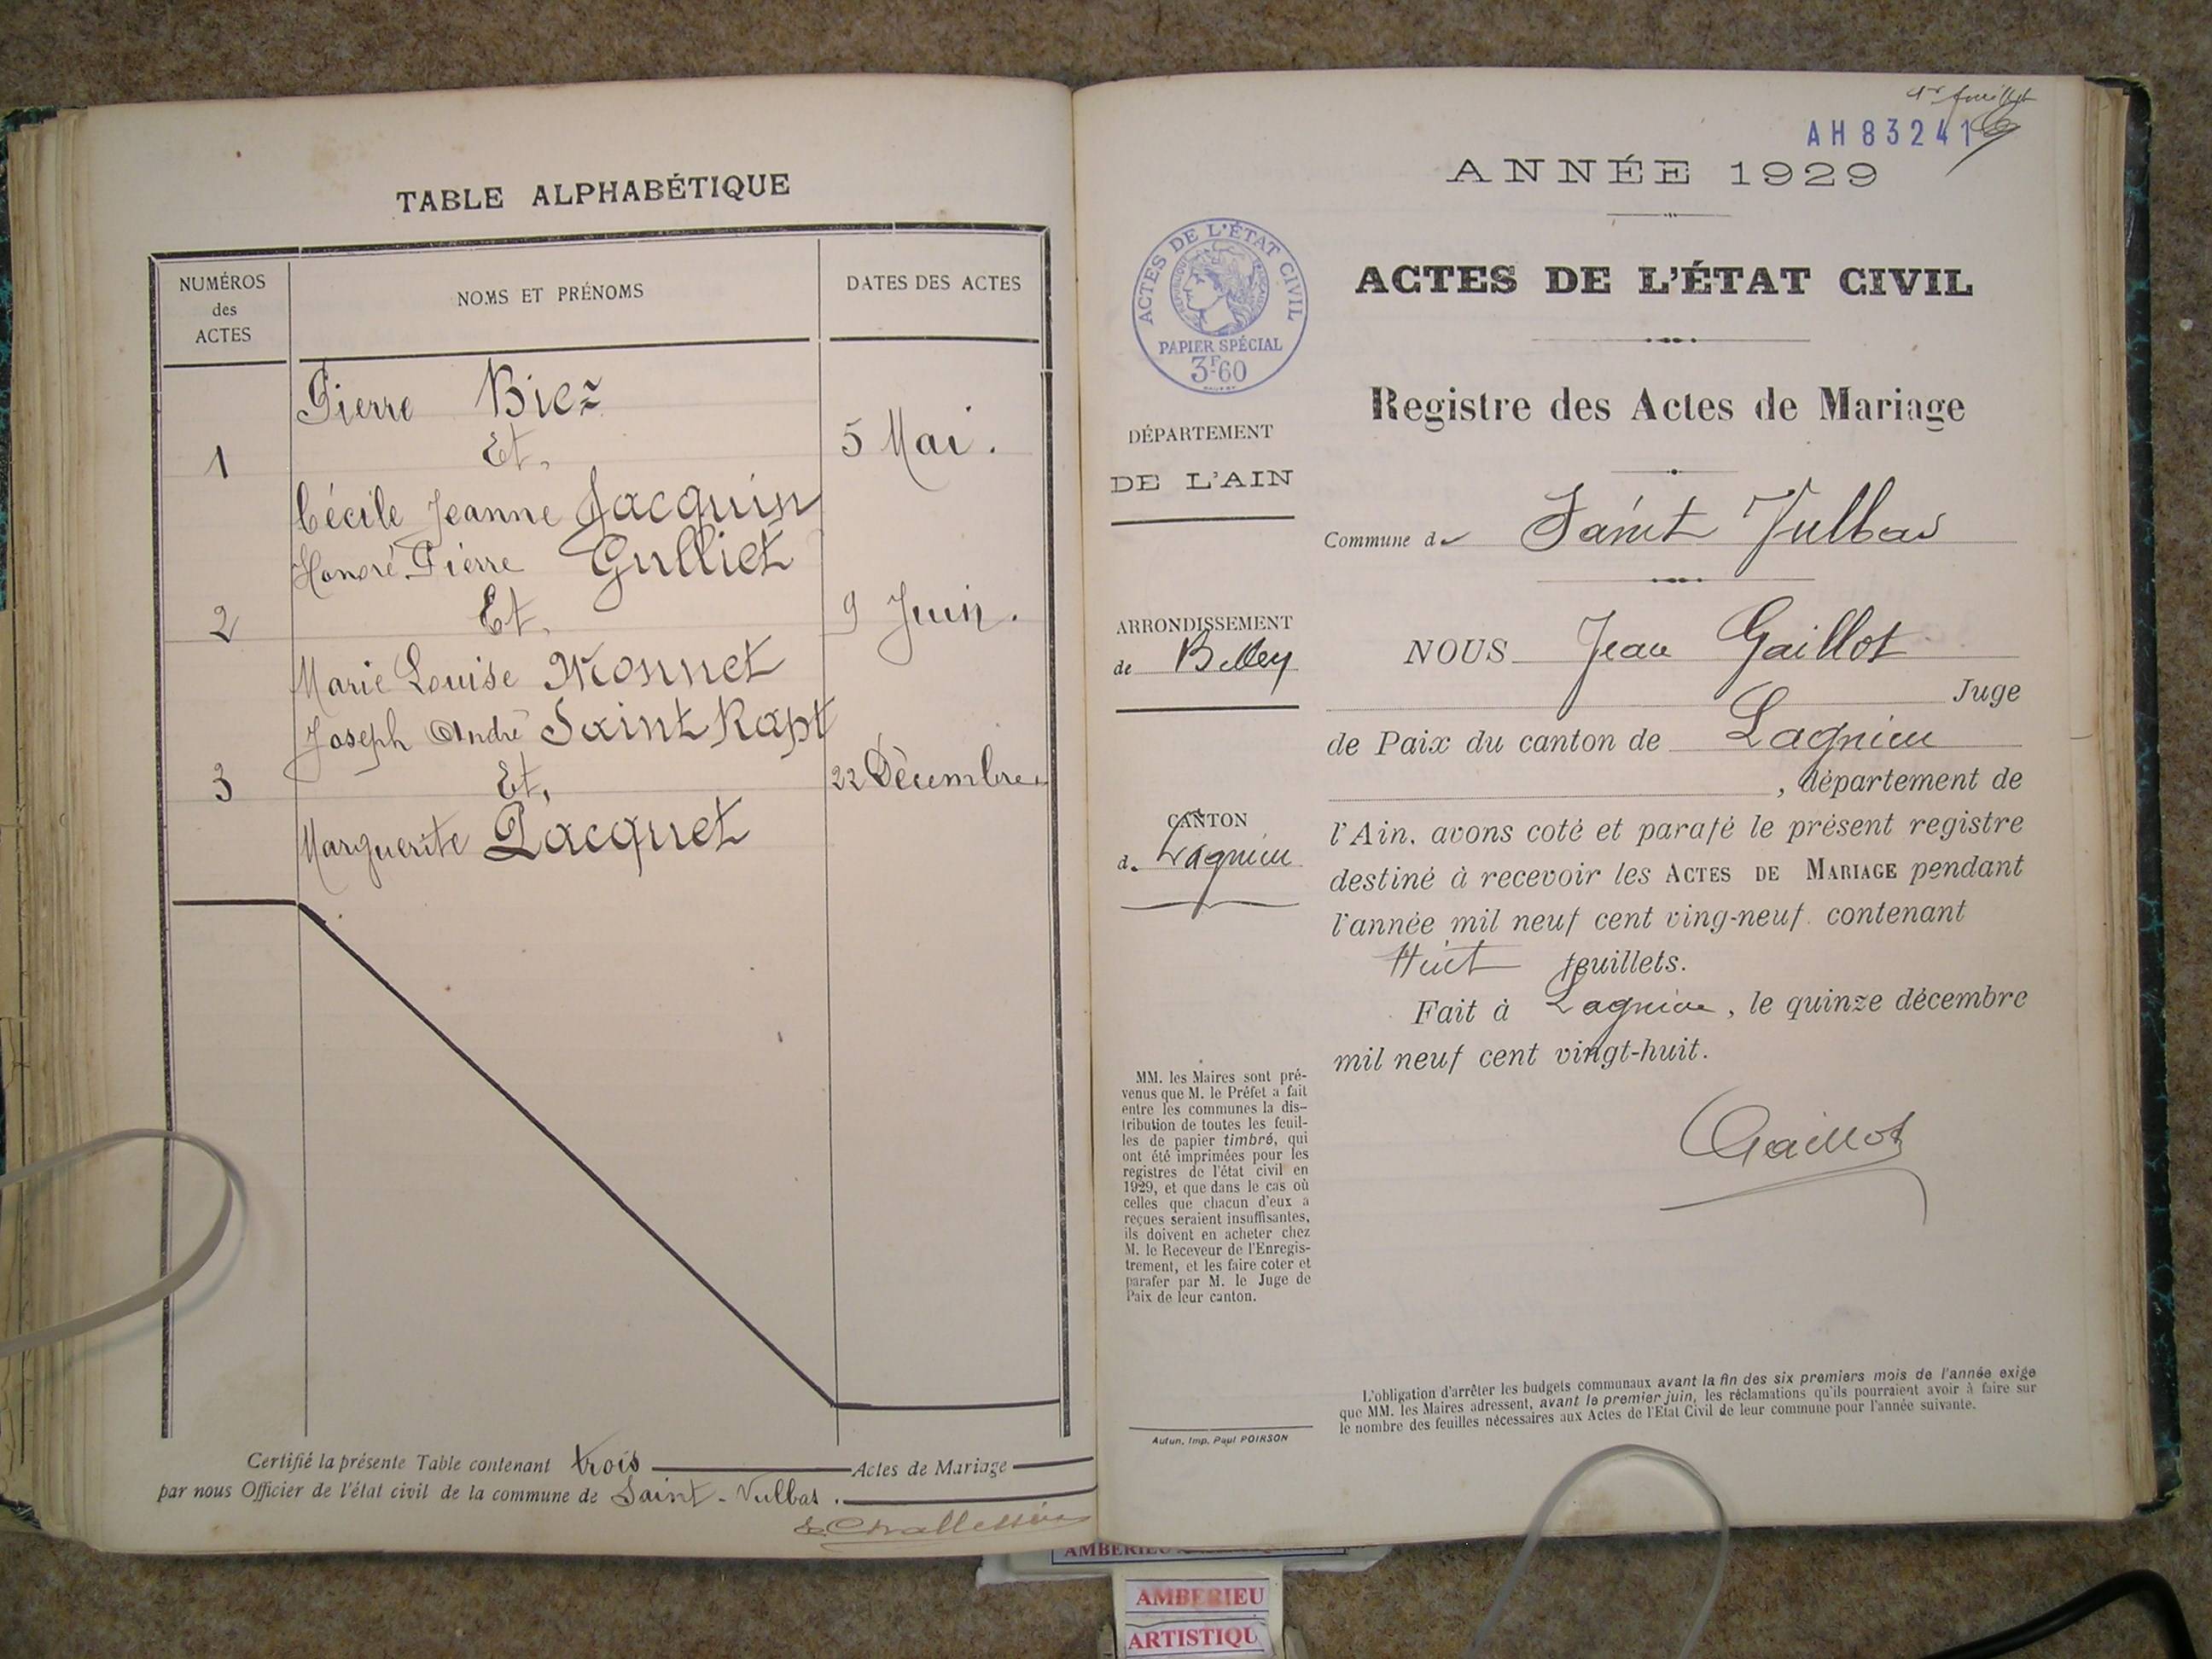 TABLE ALPHABÉTIQUE
NUMÉROS
des
ACTES
NOMS ET PRÉNOMS
DATES DES ACTES
Pierre Biez
1 Et. 5 Mai.
Cécile Jeanne Jacquin
Honoré Pierre Gulliet
2 Et. 9 Juin.
Marie Louise Monnet
Joseph André Saint Rapt
3 Et. 22 Décembre.
Marguerite Pacquet
Certifié la présente Table contenant trois Actes de Mariage
par nous Officier de l'état civil de la commune de Saint-Vulbas.
1er feuillet
AH 83241
ANNÉE 1929
ACTES DE L'ÉTAT CIVIL
RÉPUBLIQUE FRANÇAISE
PAPIER SPÉCIAL
3F.60
ACTES DE L'ÉTAT CIVIL
Registre des Actes de Mariage
DÉPARTEMENT
DE L'AIN
Commune de Saint Vulbas
ARRONDISSEMENT
de Belley
NOUS Jean Gaillot
Juge
de Paix du canton de Lagnieu
, département de
CANTON
de Lagnieu
l'Ain, avons coté et parafé le présent registre
destiné à recevoir les ACTES DE MARIAGE pendant
l'année mil neuf cent ving-neuf contenant
Huit feuillets.
Fait à Lagnieu, le quinze décembre
mil neuf cent vingt-huit.
Gaillot
MM. les Maires sont pré-
venus que M. le Préfet a fait
entre les communes la dis-
tribution de toutes les feuil-
les de papier timbré, qui
ont été imprimées pour les
registres de l'état civil en
1929, et que dans le cas où
celles que chacun d'eux a
reçues seraient insuffisantes,
ils doivent en acheter chez
M. le Receveur de l'Enregis-
trement, et les faire coter et
parafer par M. le Juge de
Paix de leur canton.
L'obligation d'arrêter les budgets communaux avant la fin des six premiers mois de l'année exige
que MM. les Maires adressent, avant le premier juin, les réclamations qu'ils pourraient avoir à faire sur
le nombre des feuilles nécessaires aux Actes de l'Etat Civil de leur commune pour l'année suivante.
Autun, Imp. Paul POIRSON
AMBERIEU
AMBERIEU
ARTISTIQU